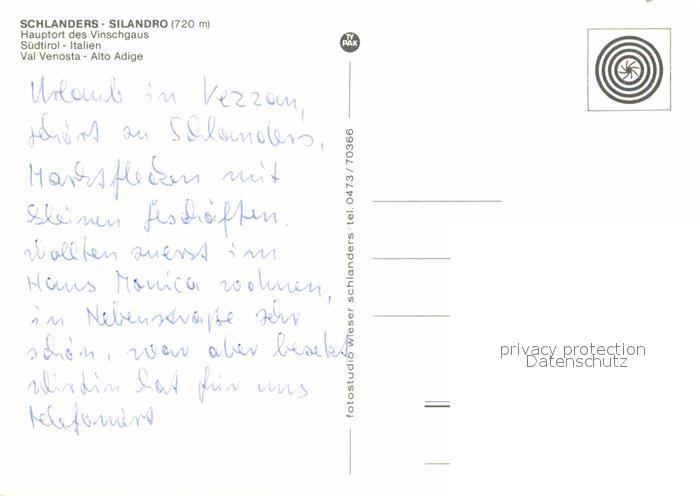 SCHLANDERS - SILANDRO (720 m)
Hauptort des Vinschgaus
Südtirol - Italien
Val Venosta - Alto Adige
TY
PAK
Urlaub in Vezzan,
gehört zu Schlanders,
Marktflecken mit
kleinen Geschäften.
Wollten zuerst im
Haus Monica wohnen,
in Nebenstraße sehr
schön, war aber besetzt
Wirtin hat für uns
telefoniert
fotostudio wieser schlanders · tel. 0473/70366
privacy protection
Datenschutz